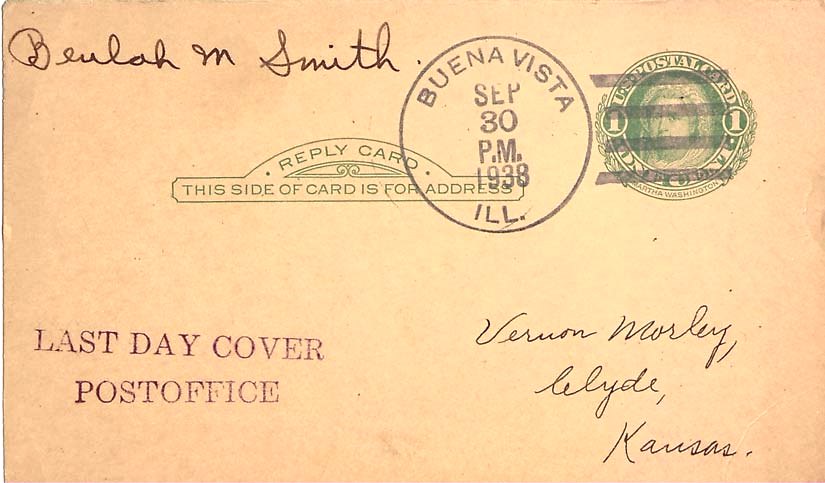 Beulah M Smith.
BUENA VISTA
SEP
30
P.M.
1938
ILL.
U.S. POSTAL CARD
1 1
ONE CENT
MARTHA WASHINGTON
· REPLY CARD ·
THIS SIDE OF CARD IS FOR ADDRESS
LAST DAY COVER
POSTOFFICE
Vernon Morley,
Clyde,
Kansas.